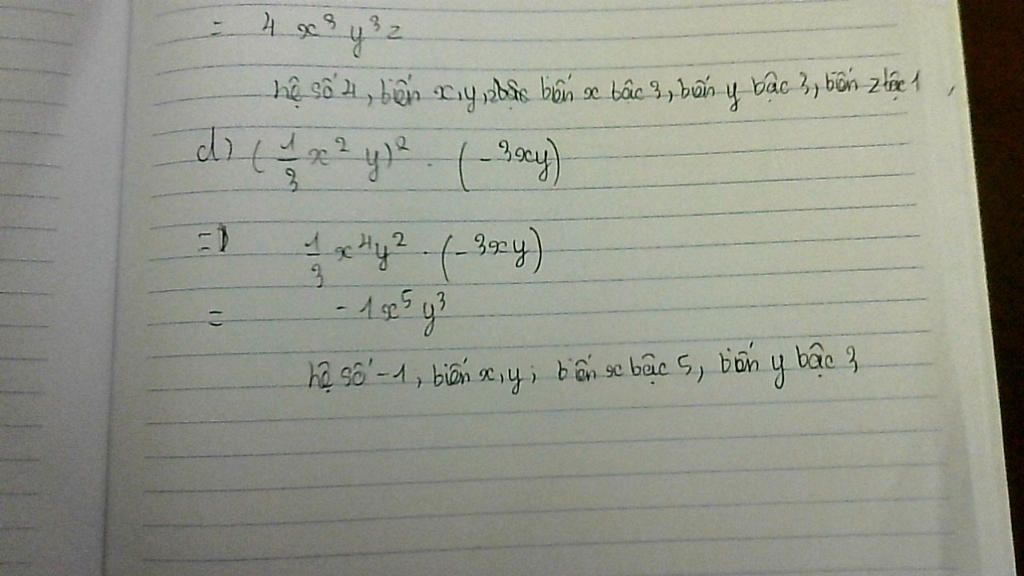 = 4 x³ y³ z
hệ số 4, biến x, y, z bậc biến x bậc 3, biến y bậc 3, biến z bậc 1
d) (1/3 x² y)² . (-3xy)
= 1/3 x⁴y² . (-3xy)
= -1x⁵y³
hệ số -1, biến x, y; biến x bậc 5, biến y bậc 3